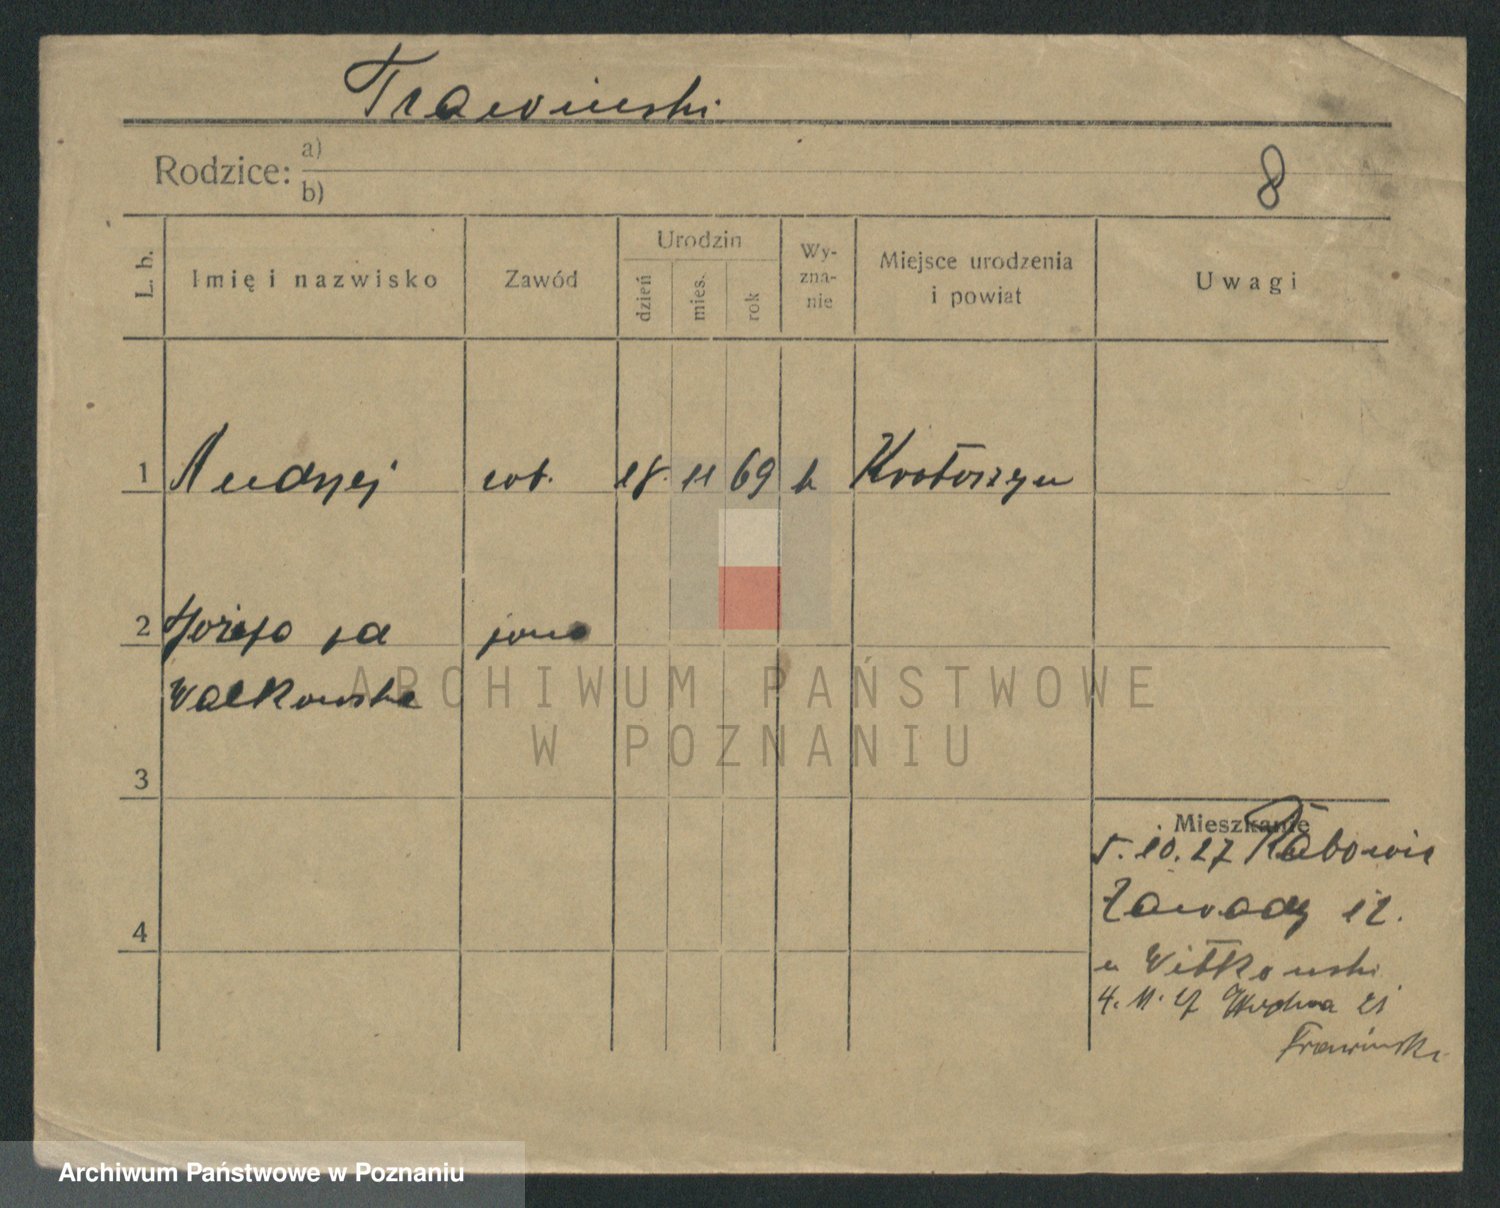 Trawinski
Rodzice: a)
b)
8
L. b.
Imię i nazwisko
Zawód
Urodzin
dzień
mies.
rok
Wy-
zna-
nie
Miejsce urodzenia
i powiat
Uwagi
1 Andrzej rob. 18. 11 69 k Krotoszyn
2 Józefa
Walkowska
3
4
Mieszkanie
5. 10. 27
Zawady 12.
u Witkowski
4. 11. 27 21
Trawinski
ARCHIWUM PAŃSTWOWE
W POZNANIU
Archiwum Państwowe w Poznaniu